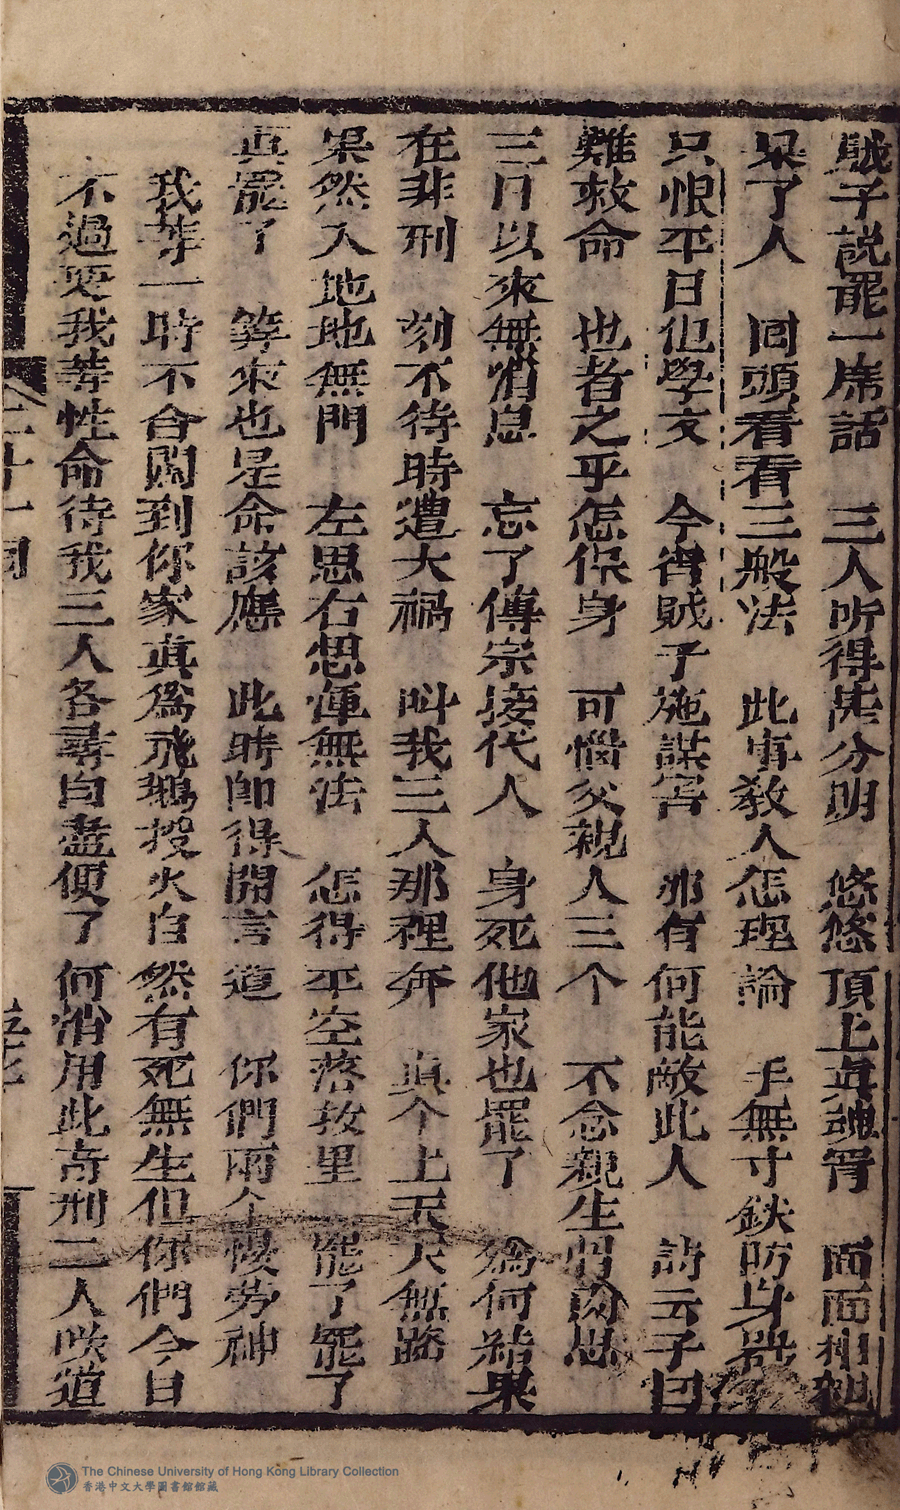 賊子説罷一席話　三人听得甚分明　悠悠頂上真魂胥　面面相覌
呆了人　囬頭看看三般法　此事教人怎理論　手無寸鉄防身噐
只恨平日也學文　今胥賊子施謀害　那有何能敵此人　詩云子曰
難救命　也者之乎怎保身　可惱父親人三个　不念親生骨肉恩
三日以來無消息　忘了傳宗接代人　身死他家也罷了　為何結果
在非刑　刻不待時遭大禍　呌我三人那裡奔　真个上天天無路
果然入地地無門　左思右想運無法　怎得平空落救星　罷了罷了
真罷了　筭來也是命該應　此時即得開言道　你們兩个慢劳神
我等一時不合闖到你家真為飛鵝投火自然有死無生但你們今日
不過要我等性命待我三人各尋自盡便了何消用此奇刑二人咲道
二十一囘
The Chinese University of Hong Kong Library Collection
香港中文大學圖書館館藏